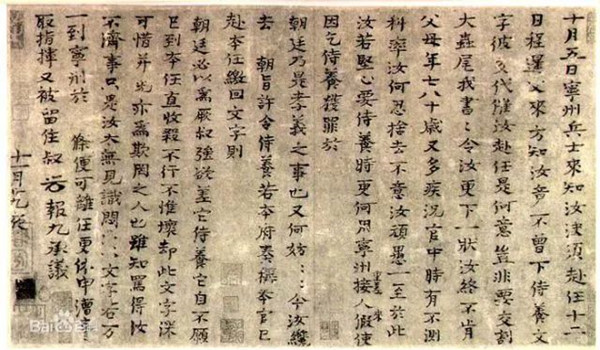 十月五日寧州兵士來知汝決須赴任十二
日程遵父來方知汝竟不曾下侍養文
字彼交代催汝赴任是何意豈非要交割
大蟲尾我書令汝更下一狀汝終不肯
父母年七八十歲又多疾況官中時有不測
科率汝何忍捨去不意汝頑愚一至於此
汝若堅心要侍養時更何用寧州接人假使
因乞侍養獲罪於
朝廷乃是孝義之事也又何妨〻〻今汝纔
去 朝旨許令侍養若本府奏稱本官已
赴本任繳回文字則
朝廷必以為厭叔強欲差它侍養它自不願
已到本任直收殺不行不惟壞却此文字深
可惜并光亦為欺罔之人也雖知罵得汝
不濟事只是汝太無見識悶〻〻文字若万
一到寧州於 條便可離任更休申漕
取指揮又被留住叔 光 報九承議
十一月
Baidu百科